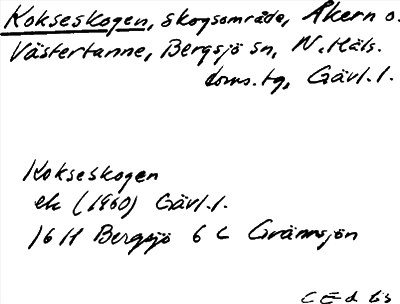 Kokseskogen, skogsområde, Åkern o.
Västertanne, Bergsjö sn, N. Häls.
doms.tg, Gävl.l.
Kokseskogen
ek (1960) Gävl.l.
16 H Bergsjö 6 c Grännsjön
C Ed